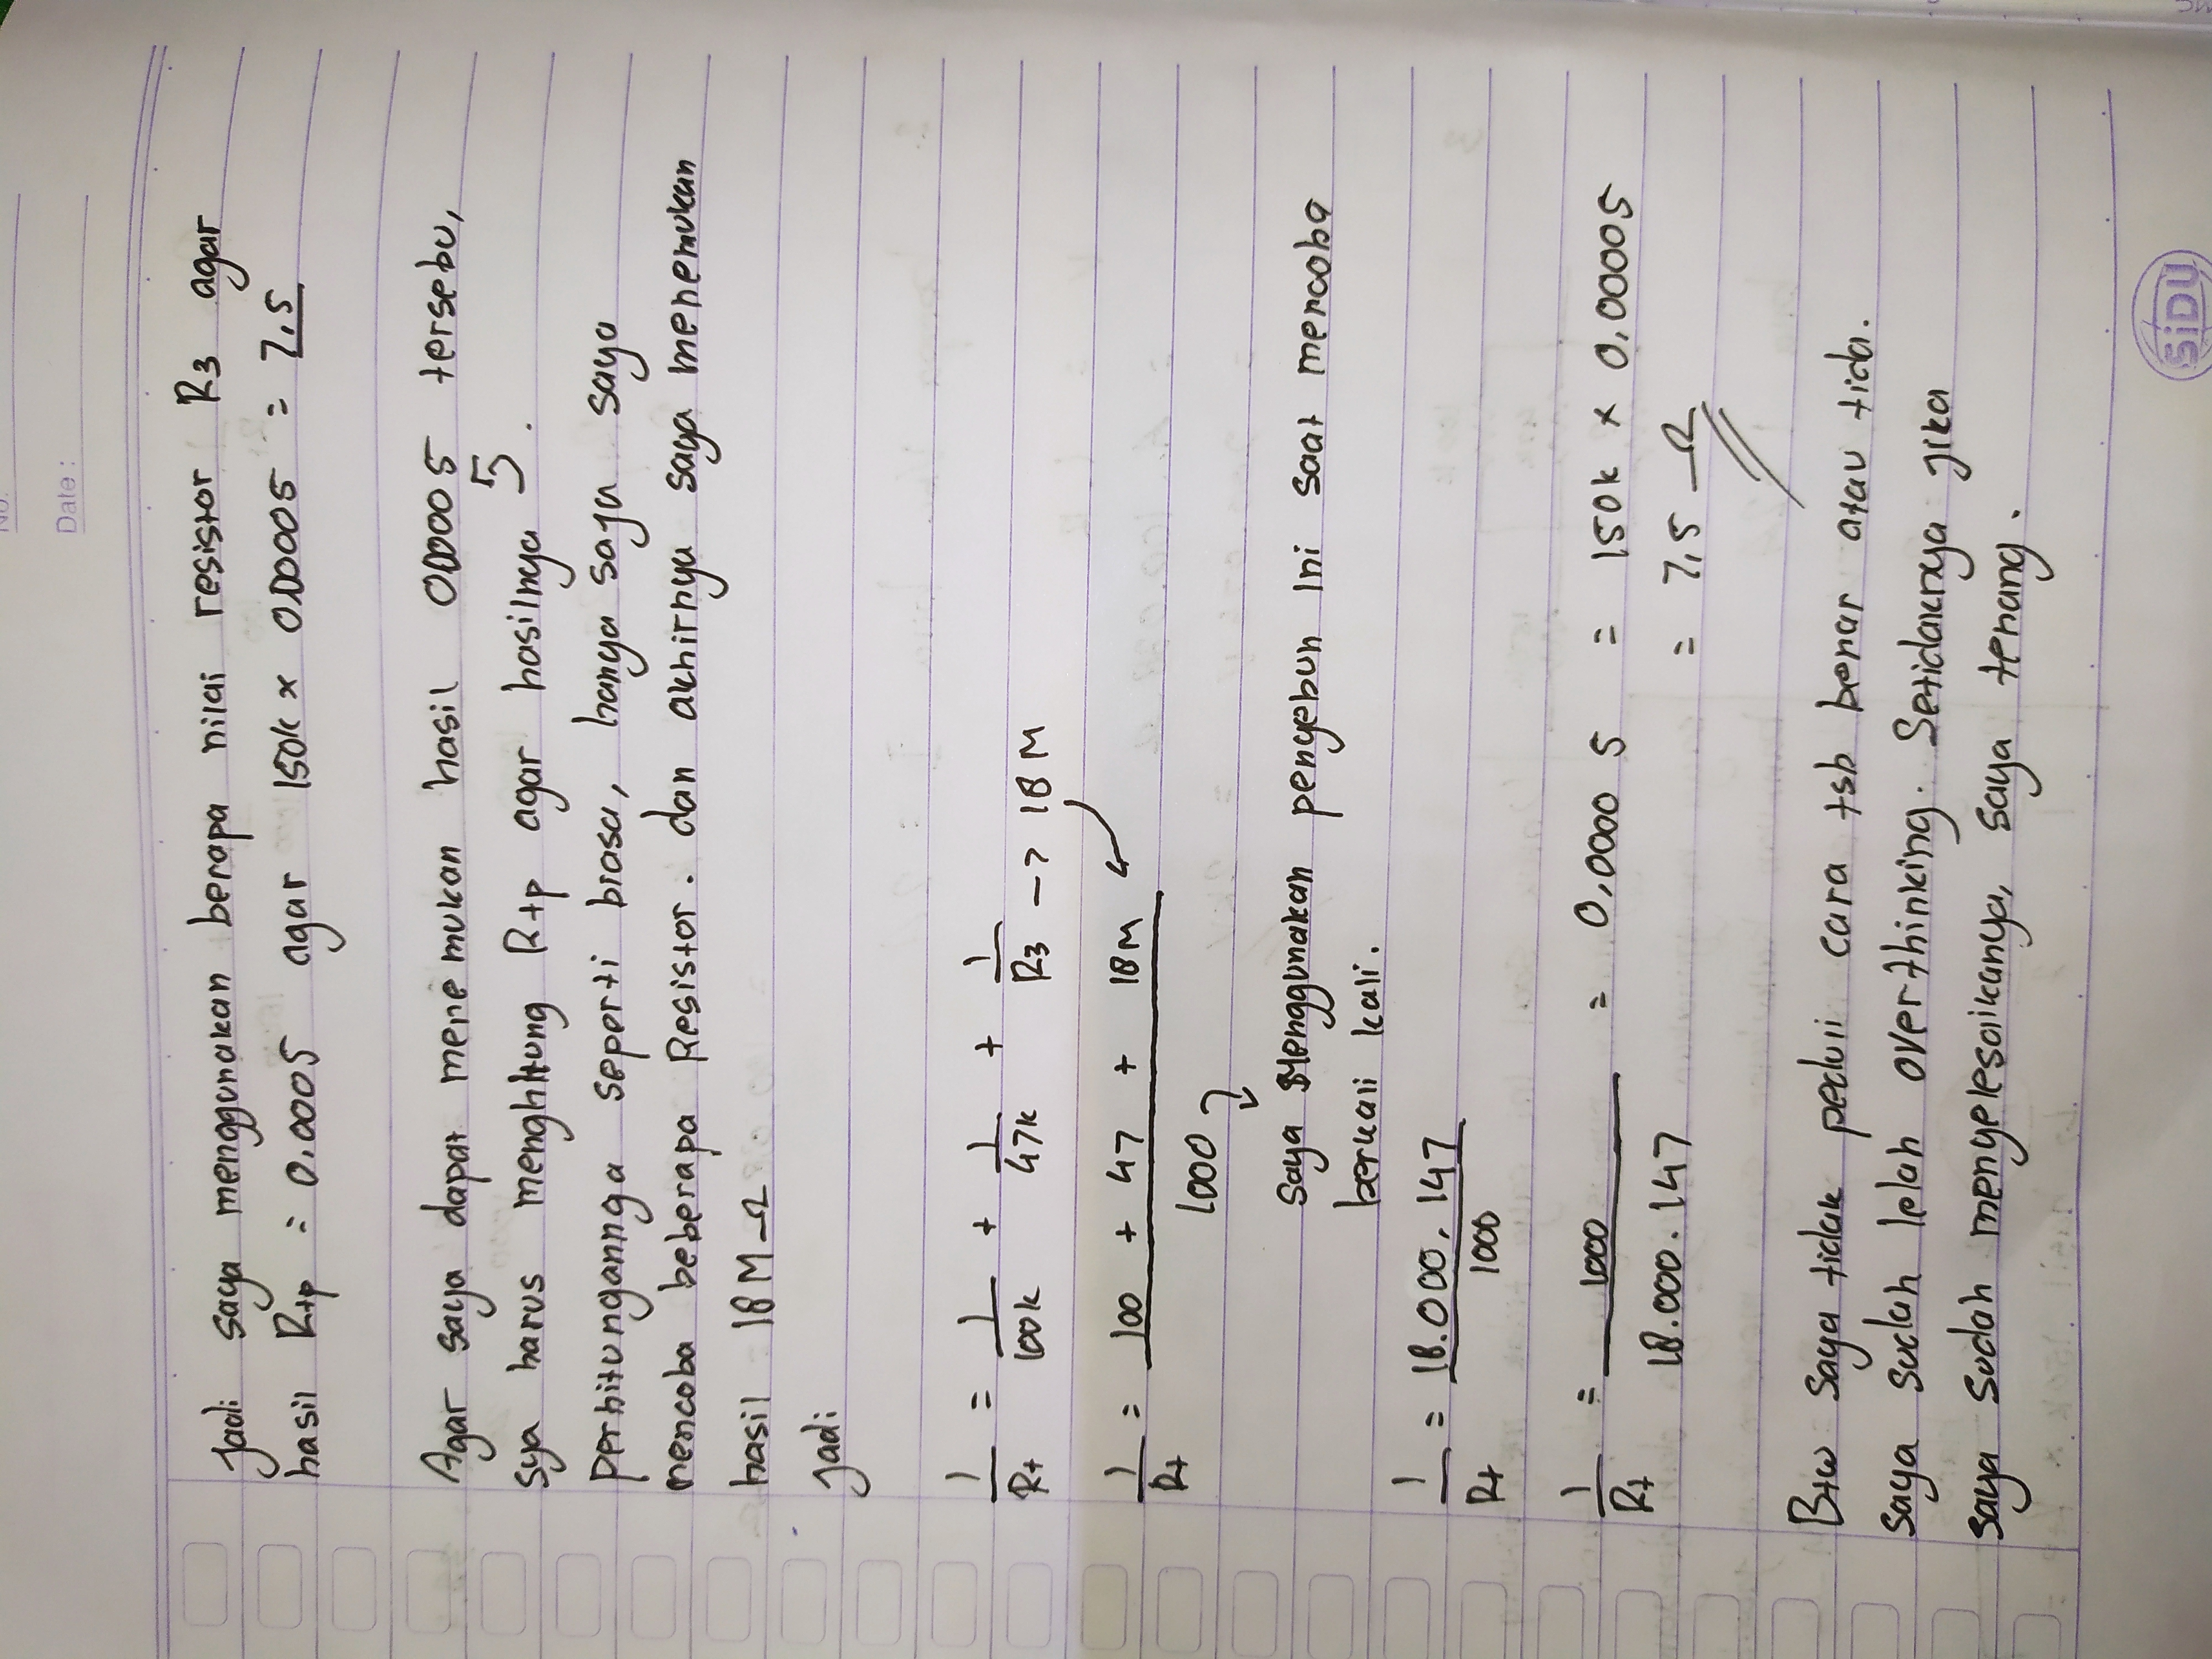 No.
Date :
Jadi saya menggunakan berapa nilai resistor R3 agar
hasil Rtp = 0,0005 agar 150k x 0,00005 = 7,5
Agar saya dapat menemukan hasil 0,00005 tersebu,
sya harus menghitung Rtp agar hasilnya 5.
perhitungannya seperti biasa, hanya saja saya
mencoba beberapa Resistor. dan akhirnya saya menemukan
hasil 18 M Ω
Jadi
1/Rt = 1/100k + 1/47k + 1/R3 -> 18 M
1/Rt = 100 + 47 + 18M / 1000
saya Menggunakan penyebun ini saat mencoba
berkali kali.
1/Rt = 18.000.147 / 1000
1/Rt = 1000 / 18.000.147 = 0,0000 5 = 150k x 0,00005
= 7,5 Ω
Btw saya tidak peduli cara tsb benar atau tida.
saya sudah lelah overthinking. Setidaknya jika
saya sudah menyelesaikanya, saya tenang.
SiDU